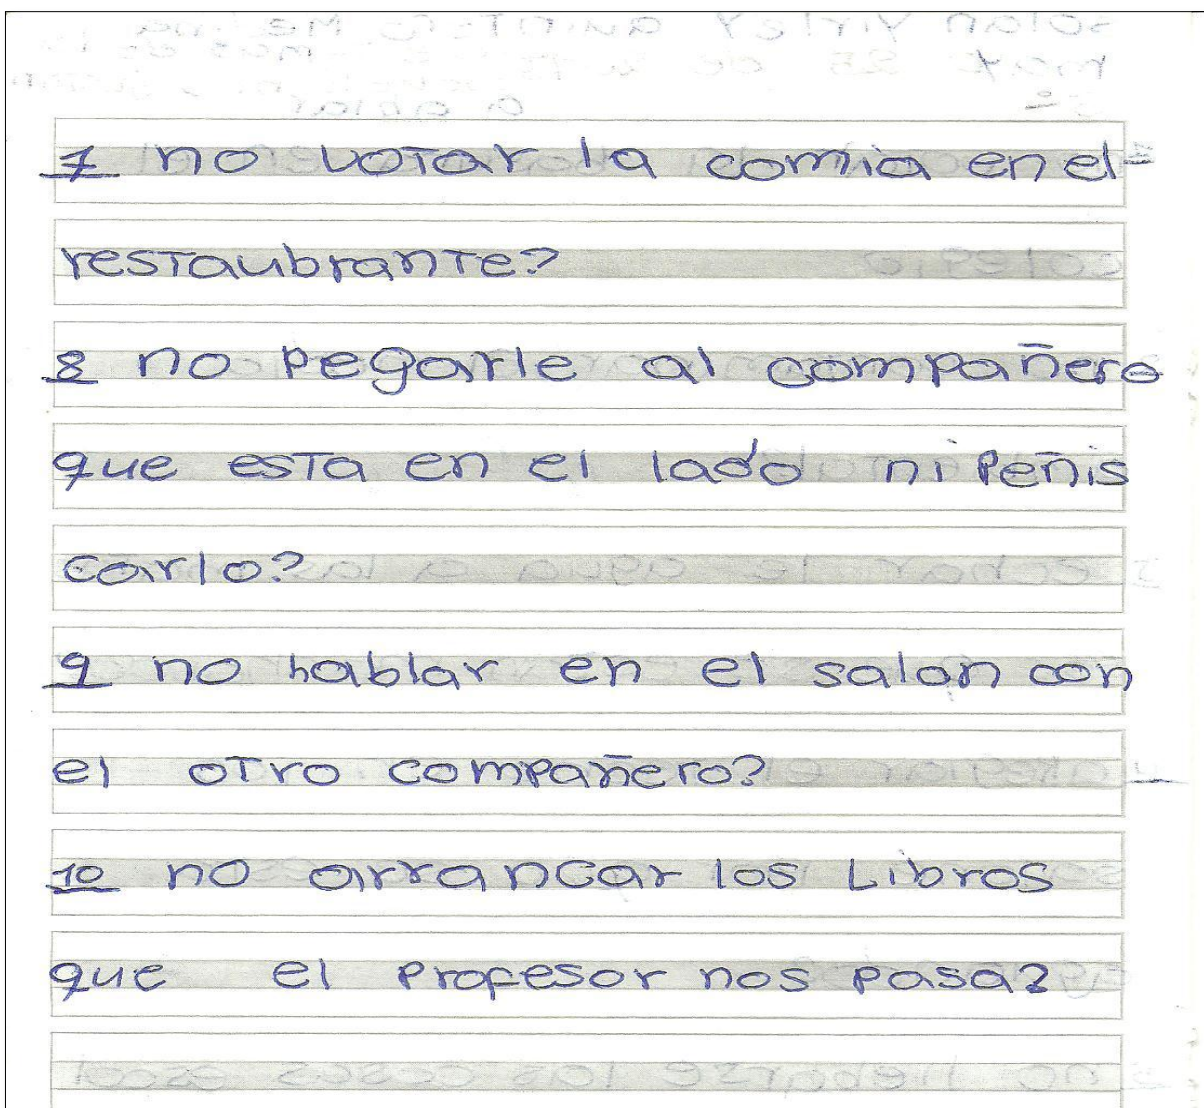 7 no votar la comia en el-
restaubrante?
8 no pegarle al compañero
que esta en el lado ni peñis
carlo?
9 no hablar en el salan con
el otro compañero?
10 no arrancar los Libros
que el profesor nos pasa?